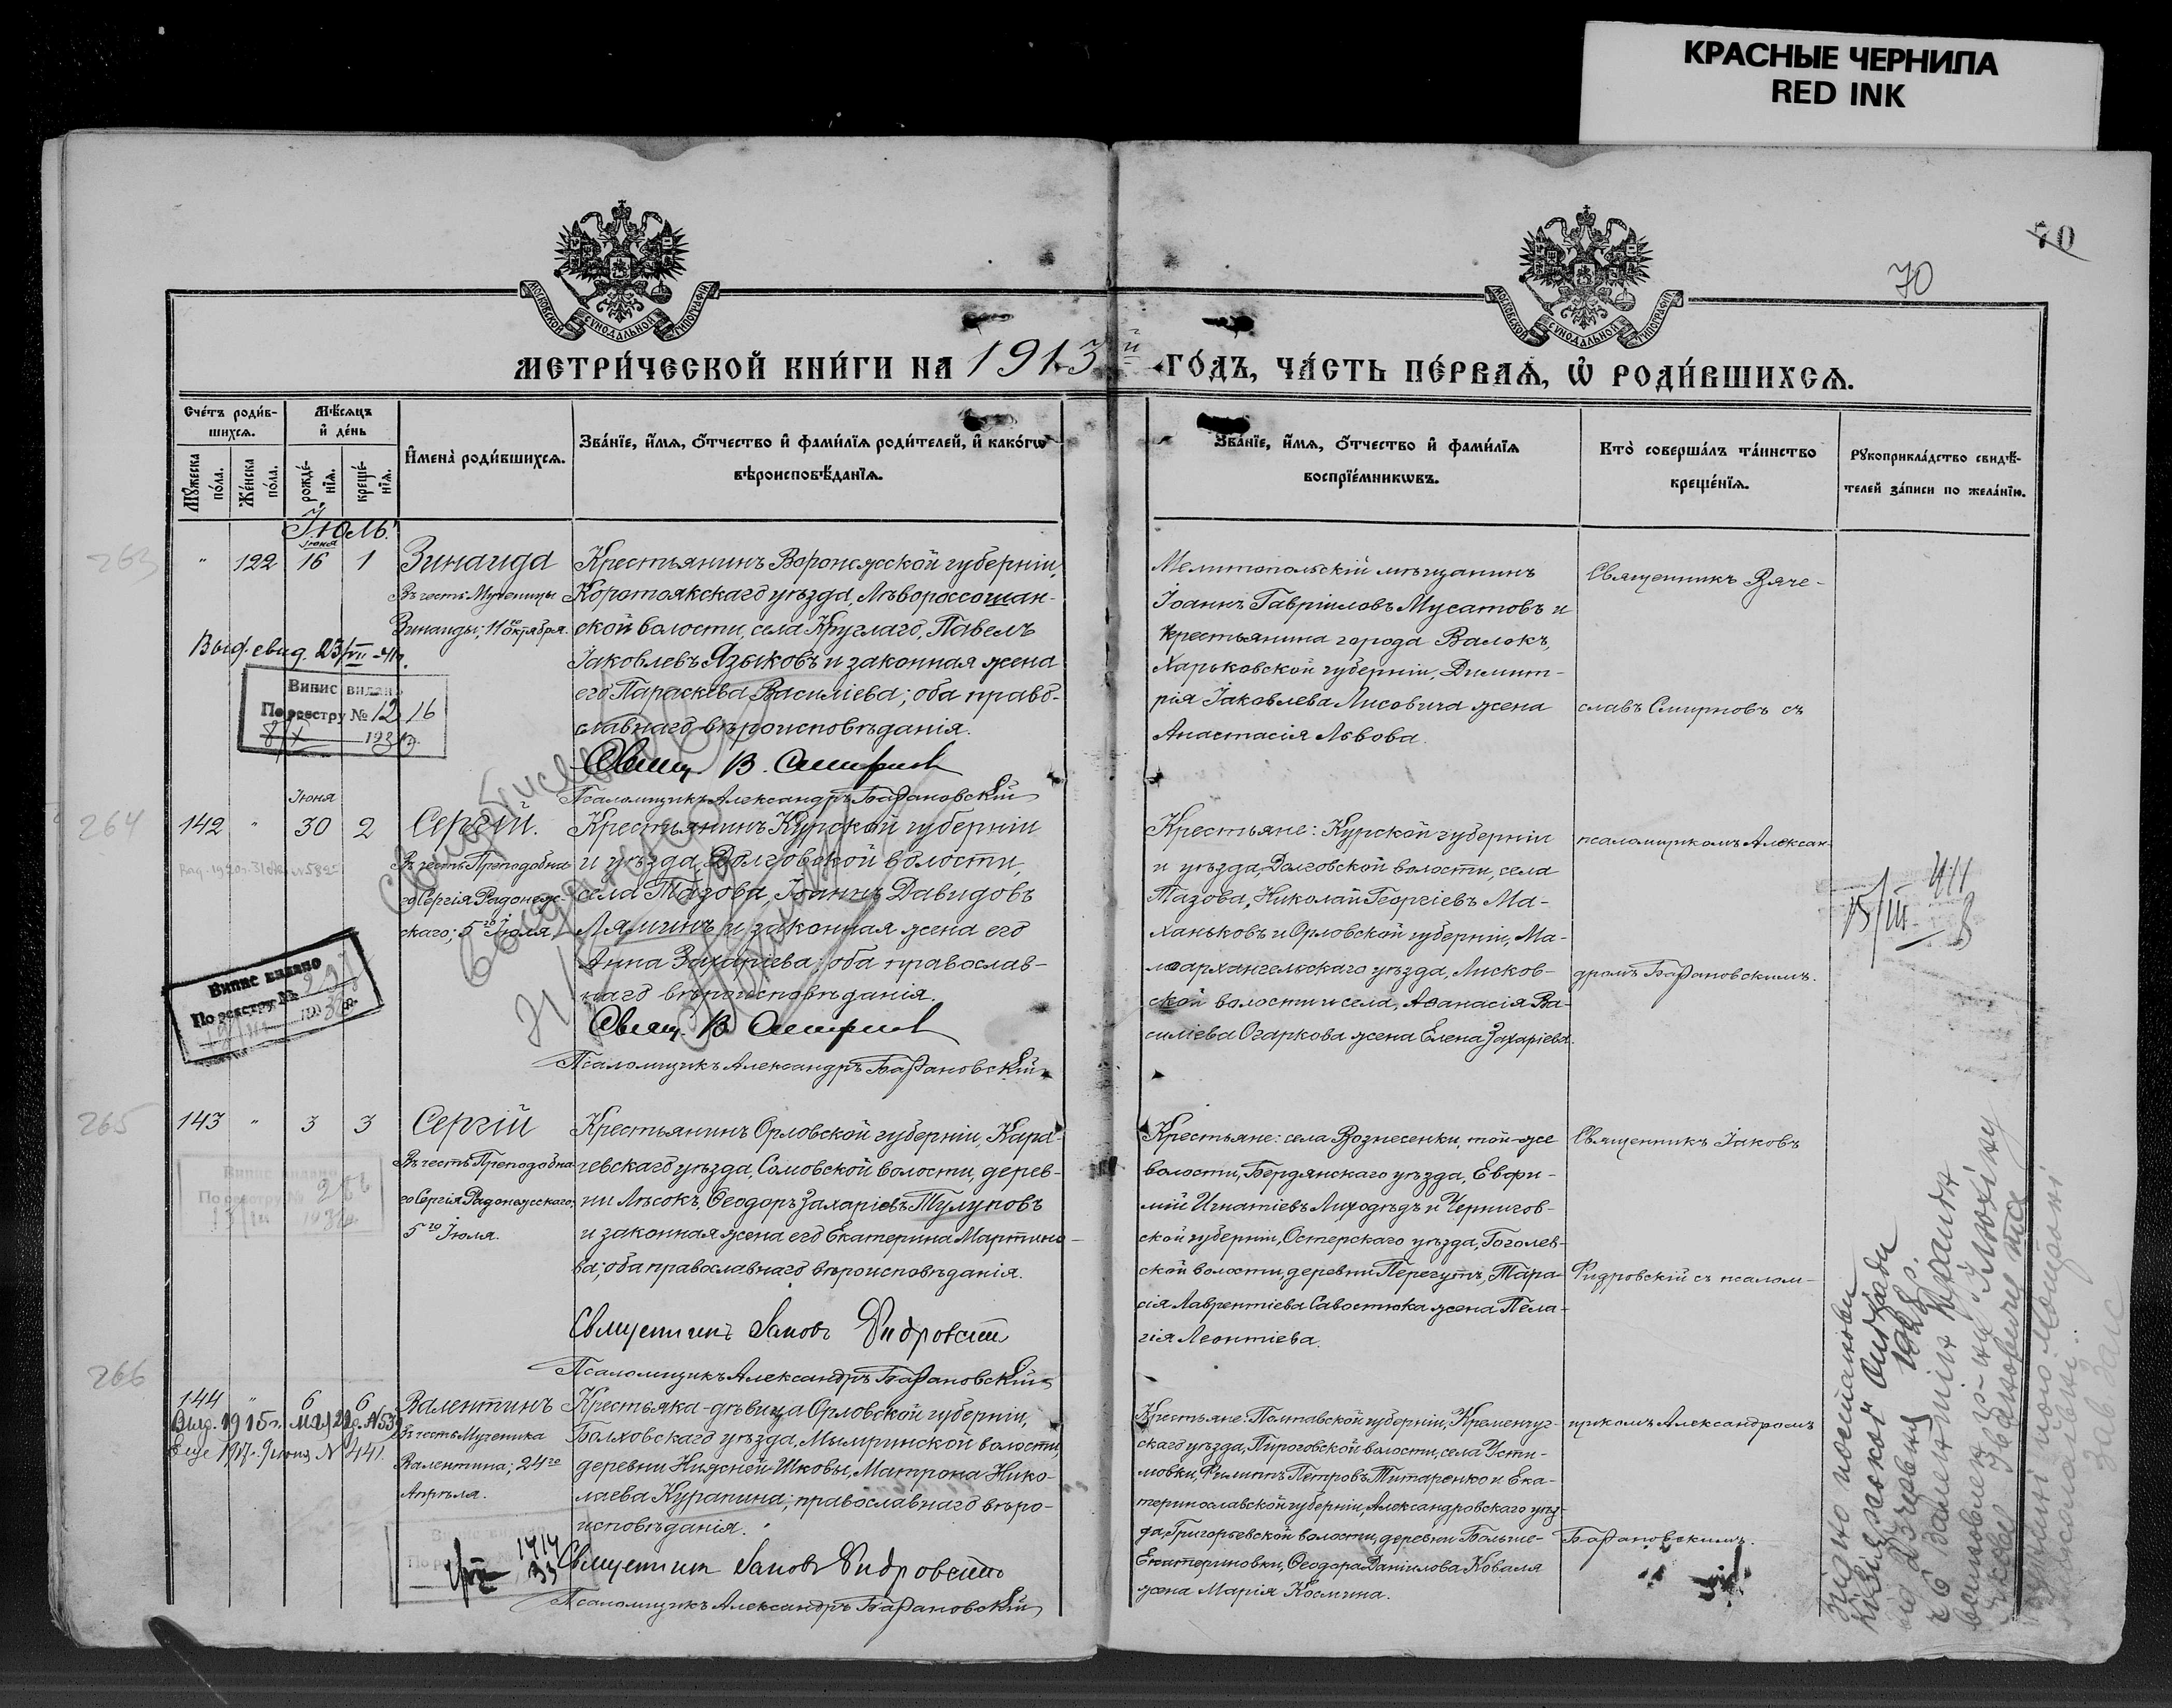 КРАСНЫЕ ЧЕРНИЛА
RED INK
70
70
МОСКОВСКОЙ СУНОДАЛЬНОЙ ТИПОГРАФІИ
МОСКОВСКОЙ СУНОДАЛЬНОЙ ТИПОГРАФІИ
МЕТРИ́ЧЕСКОЙ КНИ́ГИ НА 1913й ГО́ДЪ, ЧА́СТЬ ПЕ́РВАѦ, Ѡ РОДИ́ВШИХСѦ.
Счéтъ роди́в-
шихсѧ.
Мѣ́сѧцъ
и҆ де́нь
Мꙋ́жеска
по́ла.
Же́нска
по́ла.
рожде́-
нїѧ.
креще́-
нїѧ.
И҆мена̀ роди́вшихсѧ.
Зва́нїе, и҆́мѧ, ѻ҆́тчество и҆ фами́лїѧ роди́телей, и҆ како́гѡ
вѣроисповѣ́данїѧ.
Зва́нїе, и҆́мѧ, ѻ҆́тчество и҆ фами́лїѧ
воспрїе́мникѡвъ.
Кто̀ соверша́лъ та́инство
креще́нїѧ.
Рꙋкоприкла́дство свидѣ́-
телей за́писи по жела́нїю.
Іюль.
263
Іюня
" 122 16 1
Зинаида
Въ честь Мученицы
Зинаиды; 11го октября.
Крестьянинъ Воронежской губерніи,
Коротоякскаго уѣзда, Лѣвороссошан-
ской волости, села Круглаго, Павелъ
Іаковлевъ Языковъ и законная жена
его Параскева Василіева; оба право-
славнаго вѣроисповѣданія.
Свящ. В. Смирнов
Псаломщикъ Александръ Барановскій
Мелитопольскій мѣщанинъ
Іоаннъ Гавріиловъ Мусатовъ и
крестьянина города Валокъ,
Харьковской губерніи, Димит-
рія Іаковлева Лисовича жена
Анастасія Львова.
Священникъ Вяче-
славъ Смирновъ съ
Выд. свид. 23/VII-41г.
Випис видано
По реєстру № 1216
8/X 193
264
Іюня
142 " 30 2
Сергій.
Въ честь Преподобна-
го Сергія Радонеж-
скаго; 5го Іюля
Крестьянинъ Курской губерніи
и уѣзда, Долговской волости,
села Тазова, Іоаннъ Давидовъ
Ляминъ и законная жена его
Анна Захаріева; оба православ-
наго вѣроисповѣданія.
Свящ. В. Смирнов
Псаломщикъ Александръ Барановскій
Крестьяне: Курской губерніи
и уѣзда, Долговской волости, села
Тазова, Николай Георгіевъ Ма-
ханьковъ и Орловской губерніи, Ма-
лоархангельскаго уѣзда, Лисков-
ской волости и села, Аѳанасія Ва-
силіева Огаркова жена Елена Захаріева.
псаломщикомъ Алексан-
дромъ Барановскимъ.
Випис видано
По реєстру №
265
143 " 3 3
Сергій
Въ честь Преподобна-
го Сергія Радонежскаго;
5го Іюля.
Крестьянинъ Орловской губерніи, Кара-
чевскаго уѣзда, Сомовской волости, дерев-
ни Лѣсокъ, Ѳеодоръ Захаріевъ Тулуповъ
и законная жена его Екатерина Мартино-
ва; оба православнаго вѣроисповѣданія.
Священникъ Іаковъ Фидровскій
Псаломщикъ Александръ Барановскій
Крестьяне: села Вознесенки, той-же
волости, Бердянскаго уѣзда, Евфи-
мій Игнатіевъ Лиходѣдъ и Чернигов-
ской губерніи, Остерскаго уѣзда, Гоголев-
ской волости, деревни Перегутъ, Тара-
сія Лаврентіева Савостюка жена Пела-
гія Леонтіева.
Священникъ Іаковъ
Фидровскій съ псалом-
Випис видано
По реєстру № 286
266
144 " 6 6
Выд. 1915г. мая 22д. №539
Еще 1917. 9 июня №441.
Валентинъ
Въ честь Мученика
Валентина; 24го
Апрѣля.
Крестьяка-дѣвица Орловской губерніи,
Болховскаго уѣзда, Мымринской волости,
деревни Нижней-Шковы, Матрона Нико-
лаева Курапина; православнаго вѣро-
исповѣданія.
Священник Іаковъ Фидровскій
Псаломщикъ Александръ Барановскій
Крестьяне: Полтавской губерніи, Кременчуг-
скаго уѣзда, Пироговской волости, села Усти-
мовки, Филиппъ Петровъ Титаренко и Ека-
теринославской губерніи, Александровскаго уѣз-
да, Григорьевской волости, деревни Больше-
Екатериновки, Ѳеодора Даніилова Коваля
жена Марія Космина.
щикомъ Александромъ
Барановскимъ.